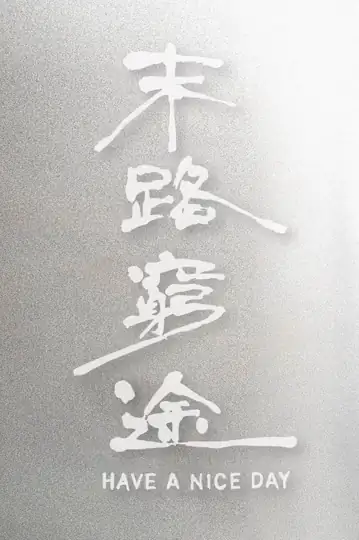 末路窮途
HAVE A NICE DAY